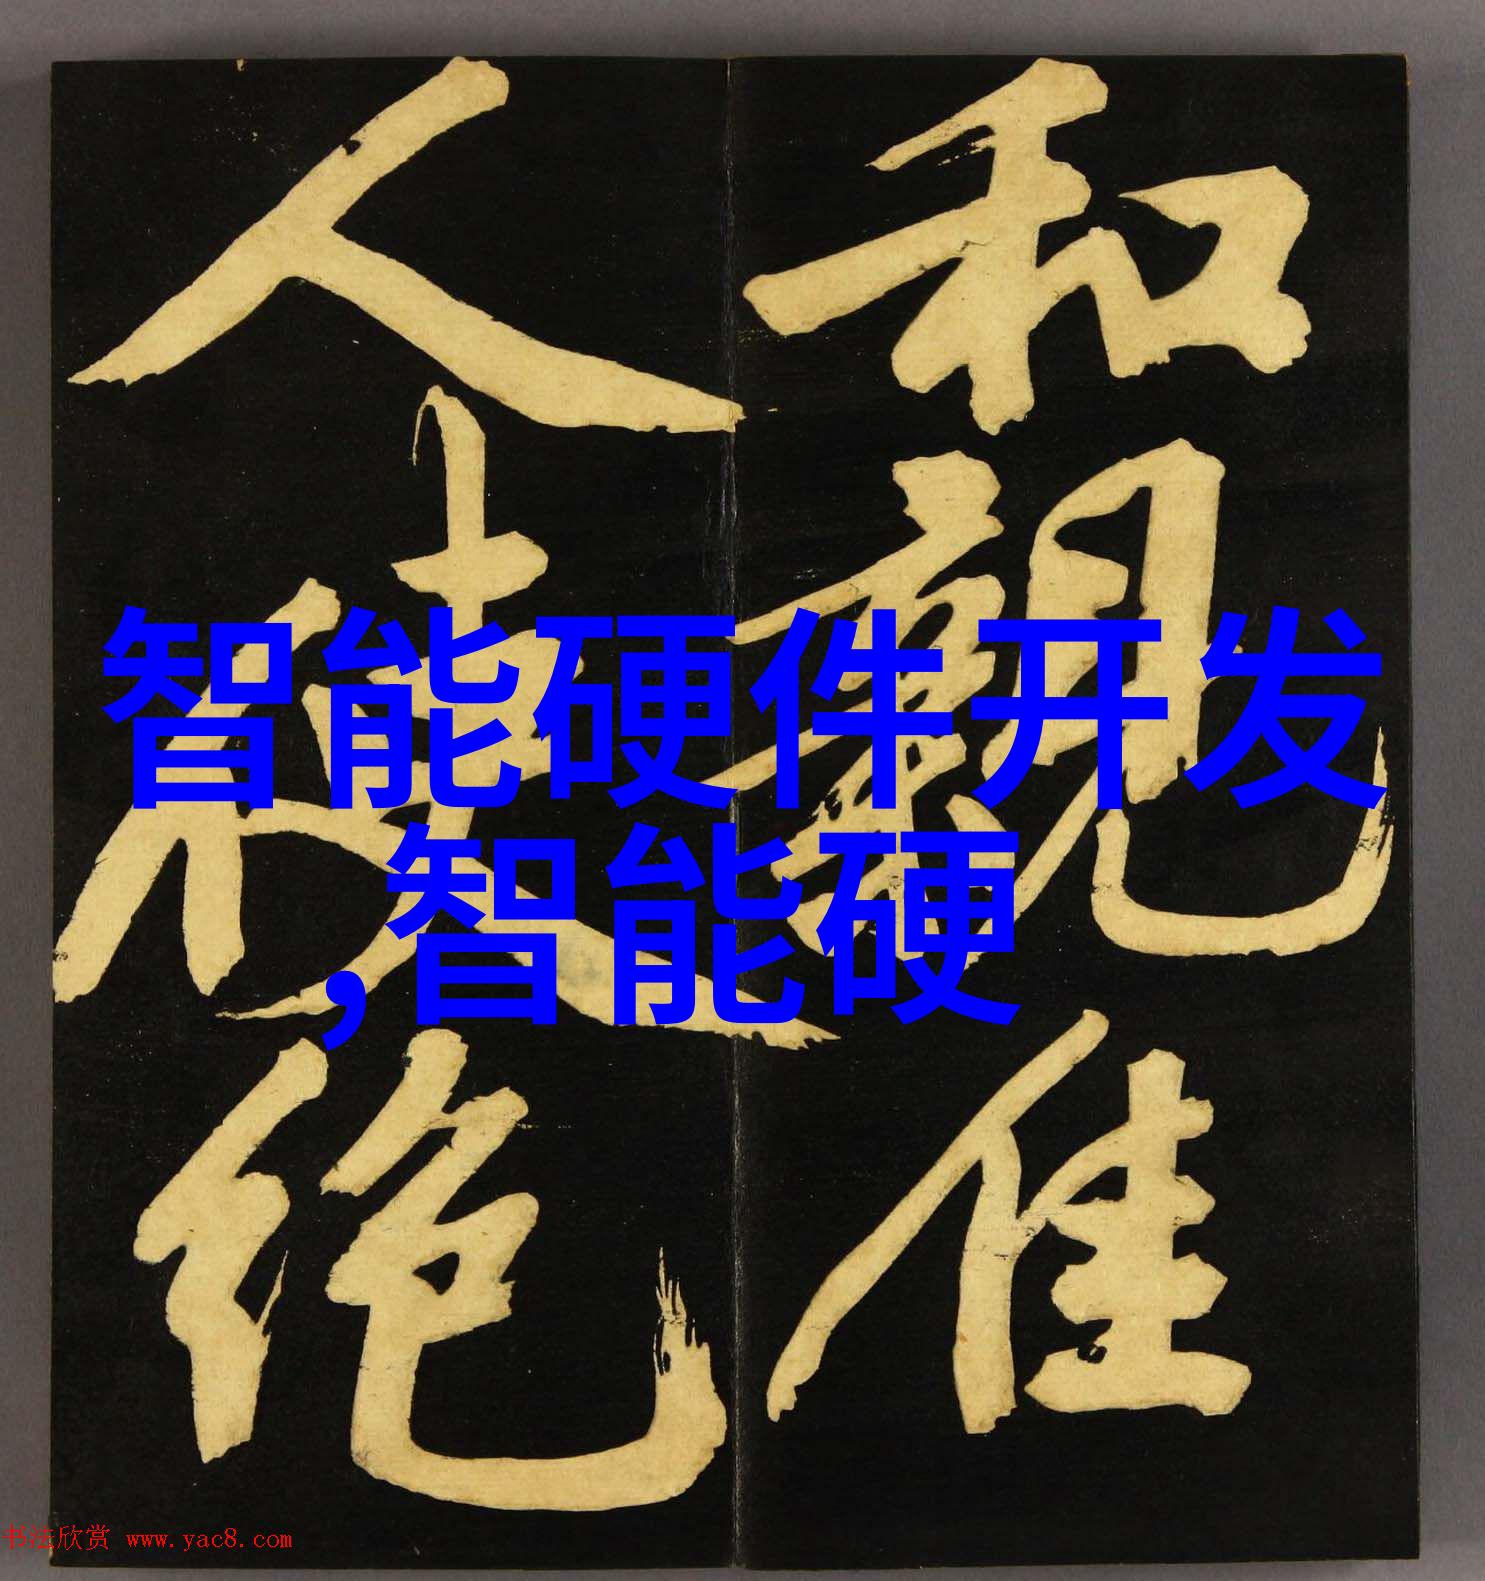 和親佳
人使绝
智能硬件开发
,智能硬
书法欣赏 www.yac8.com